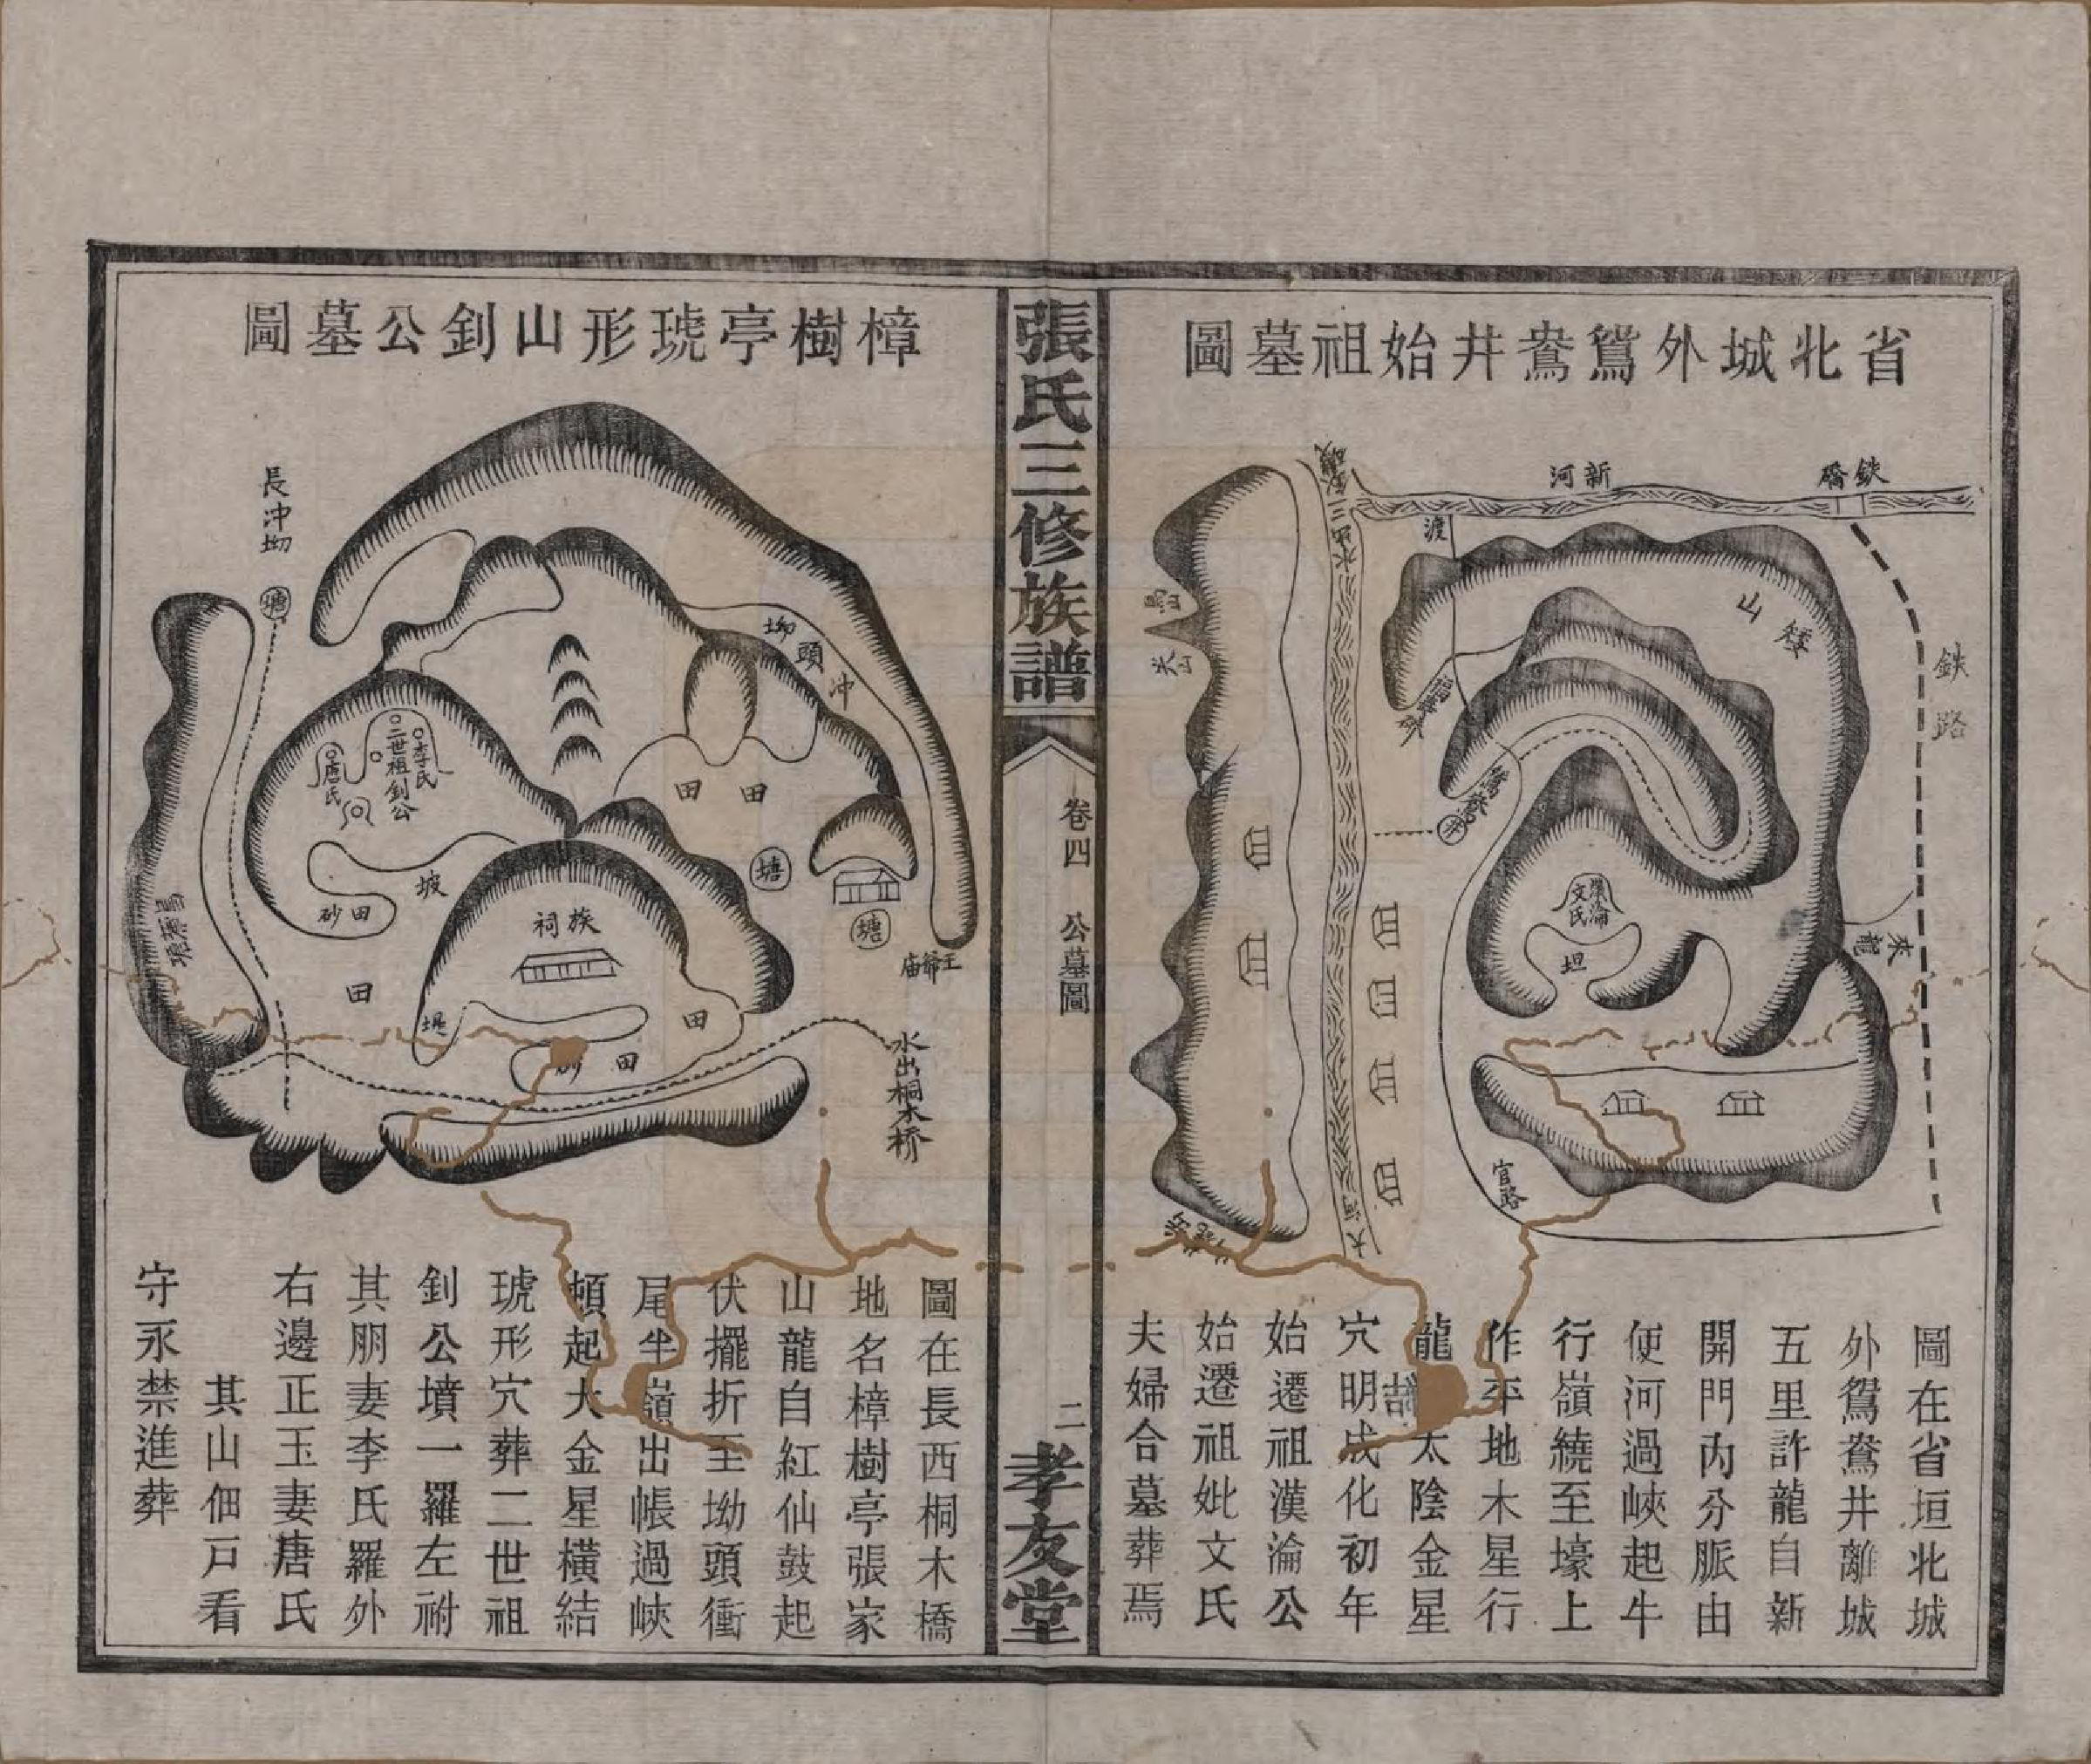 省北城外鴛鴦井始祖墓圖
鉄橋
新河
渡
鉄路
山
官路
大河
坦
文氏
漢淪
來龍
圖在省垣北城
外鴛鴦井離城
五里許龍自新
開門內分脈由
便河過峽起牛
行嶺繞至壕上
作平地木星行
龍
太陰金星
穴明成化初年
始遷祖漢淪公
始遷祖妣文氏
夫婦合墓葬焉
張氏三修族譜
卷四
公墓圖
二
孝友堂
樟樹亭琥形山釗公墓圖
長冲坳
塘
坳頭冲
李氏
二世祖釗公
唐氏
田
田
塘
塘
坡
田砂
族祠
田
田
堤
田
水出桐木桥
圖在長西桐木橋
地名樟樹亭張家
山龍自紅仙鼓起
伏擺折至坳頭衝
尾半嶺出帳過峽
頓起大金星橫結
琥形穴葬二世祖
釗公墳一羅左祔
其朋妻李氏羅外
右邊正玉妻唐氏
其山佃戸看
守永禁進葬